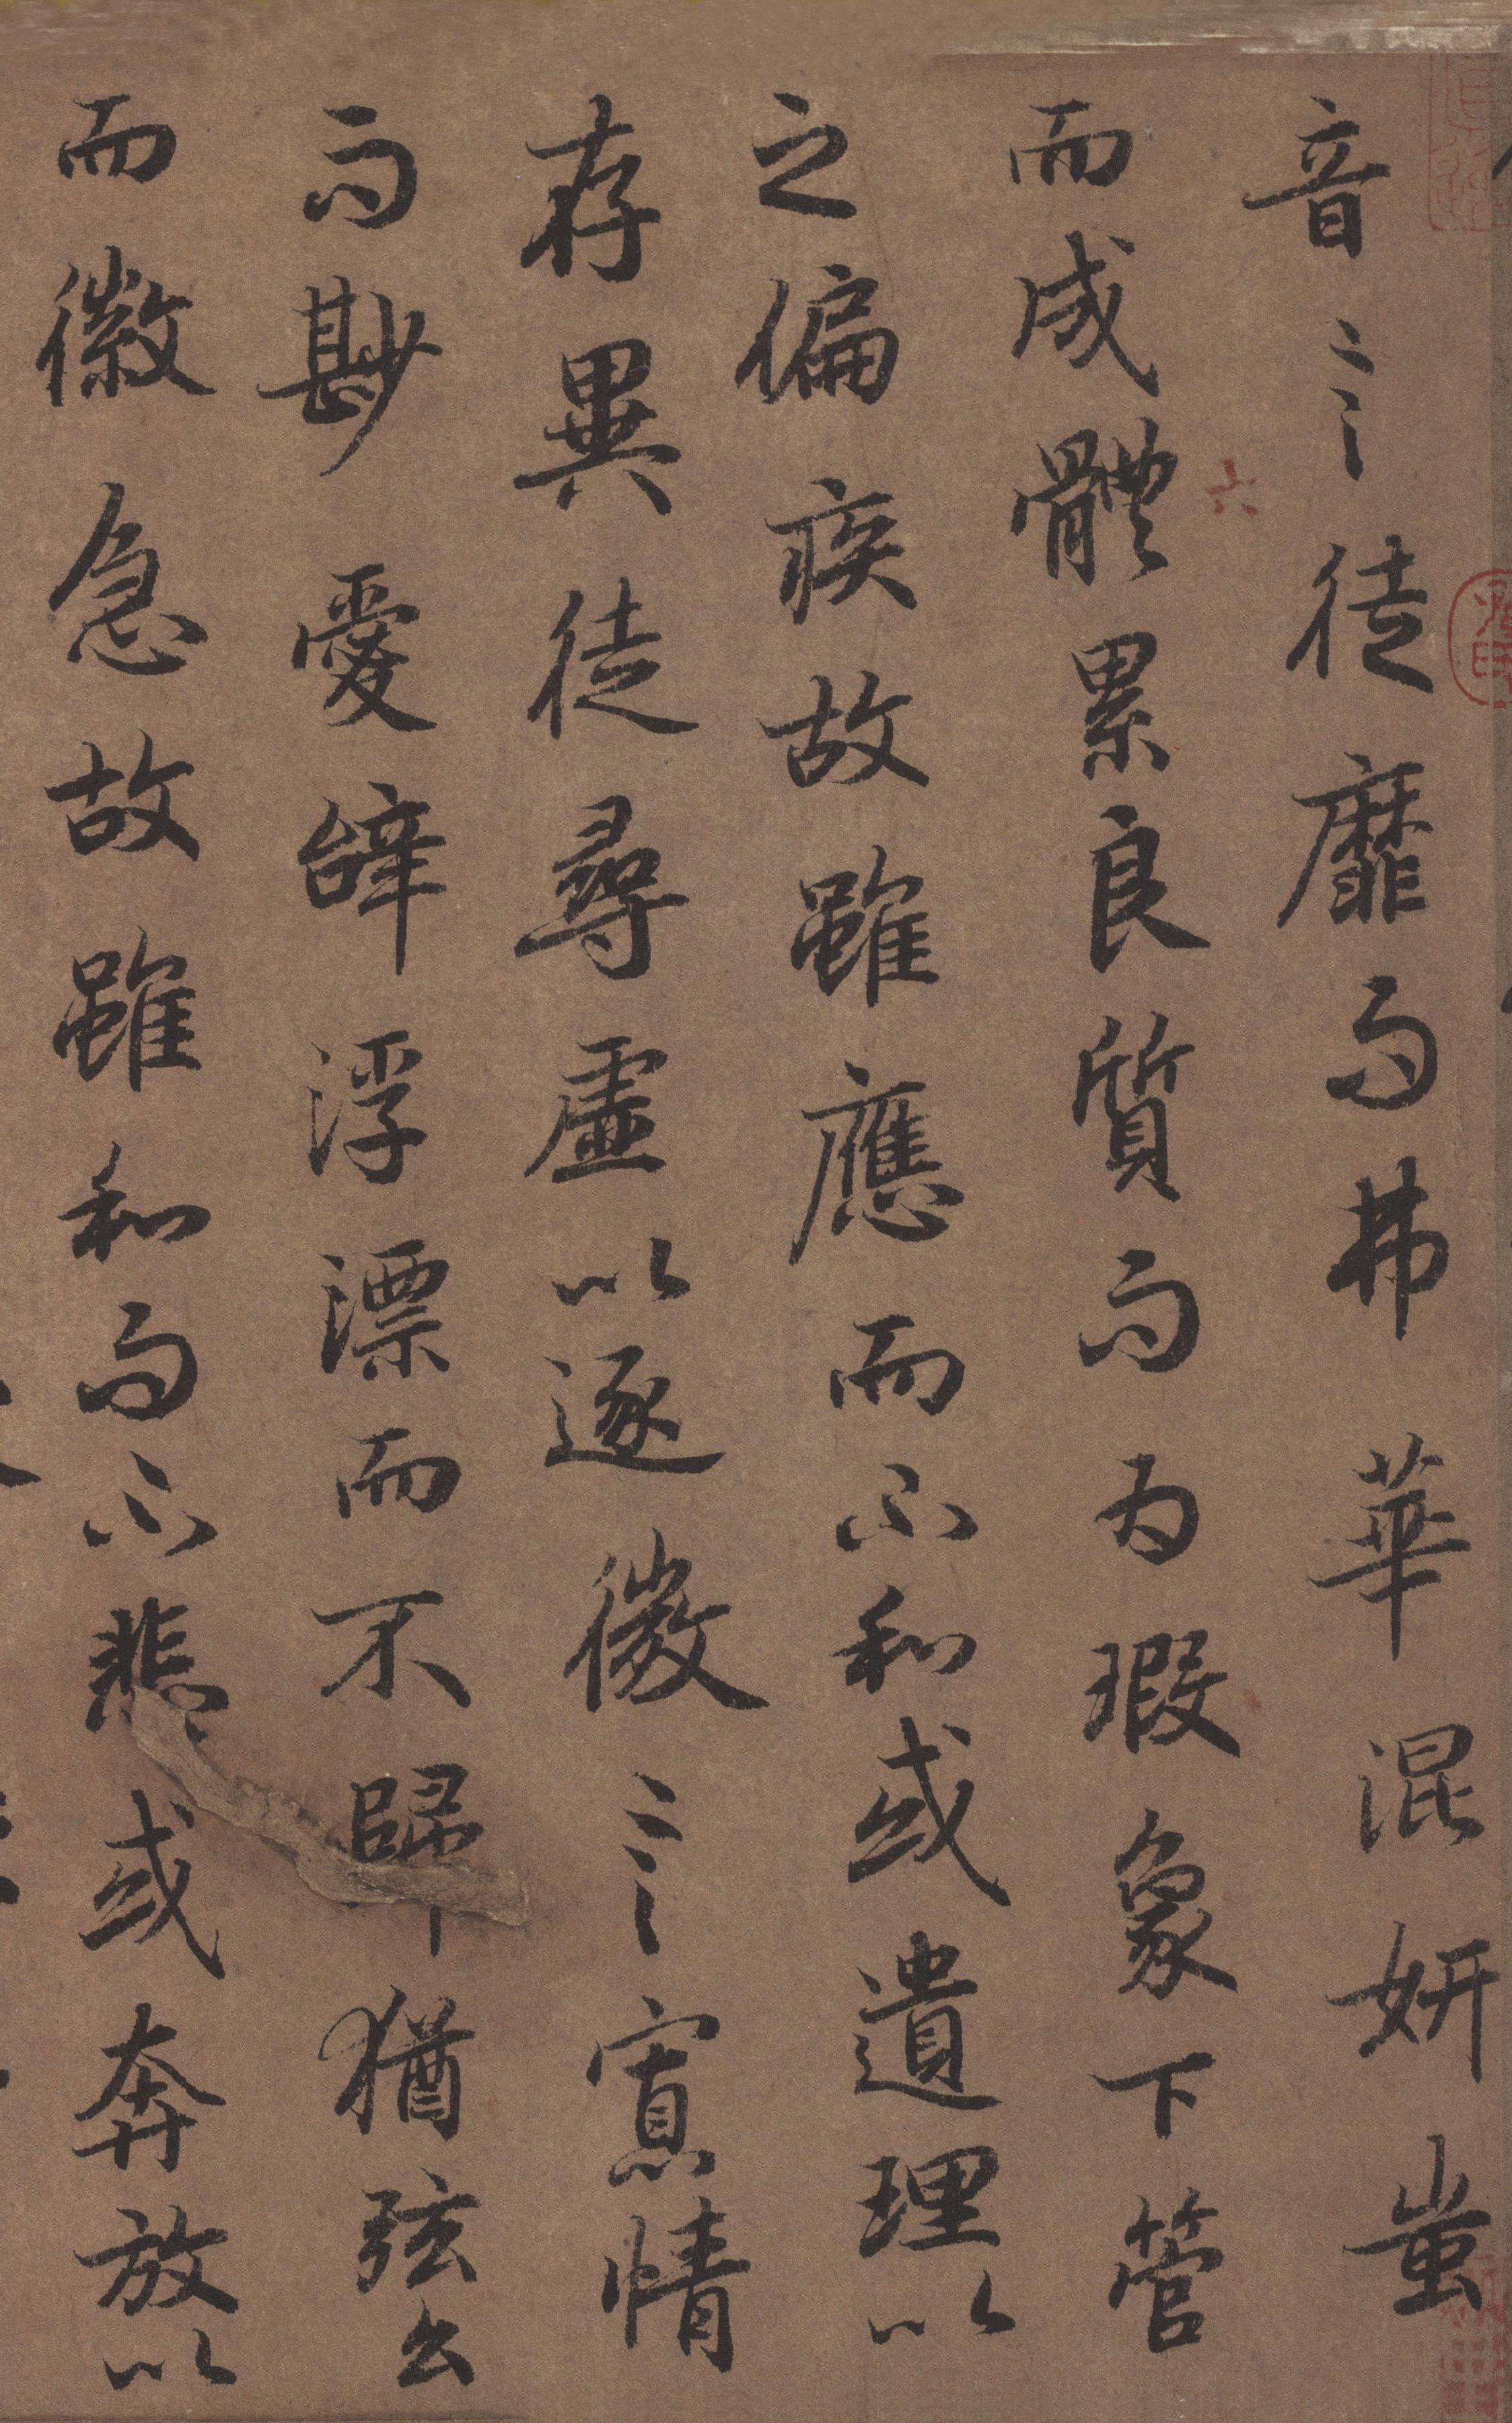 音言徒靡而弗華混妍蚩
而成體累良質而為瑕象下管
之偏疾故雖應而不和或遺理以
存異徒尋虛以逐微言寡情
而尠愛辝浮漂而不歸猶弦幺
而徽急故雖和而不悲或奔放以